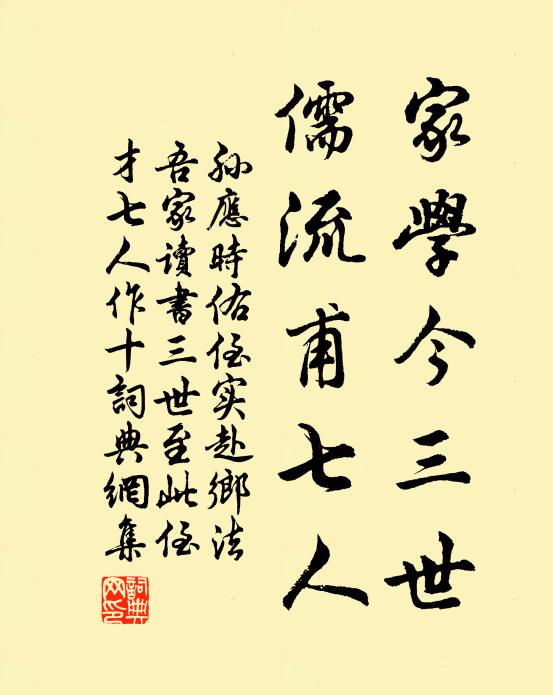 家學今三世
儒流甫七人
孫應時佑侄实赴鄉法
吾家讀書三世至此侄
才七人作十詞典網集
詞典
网印